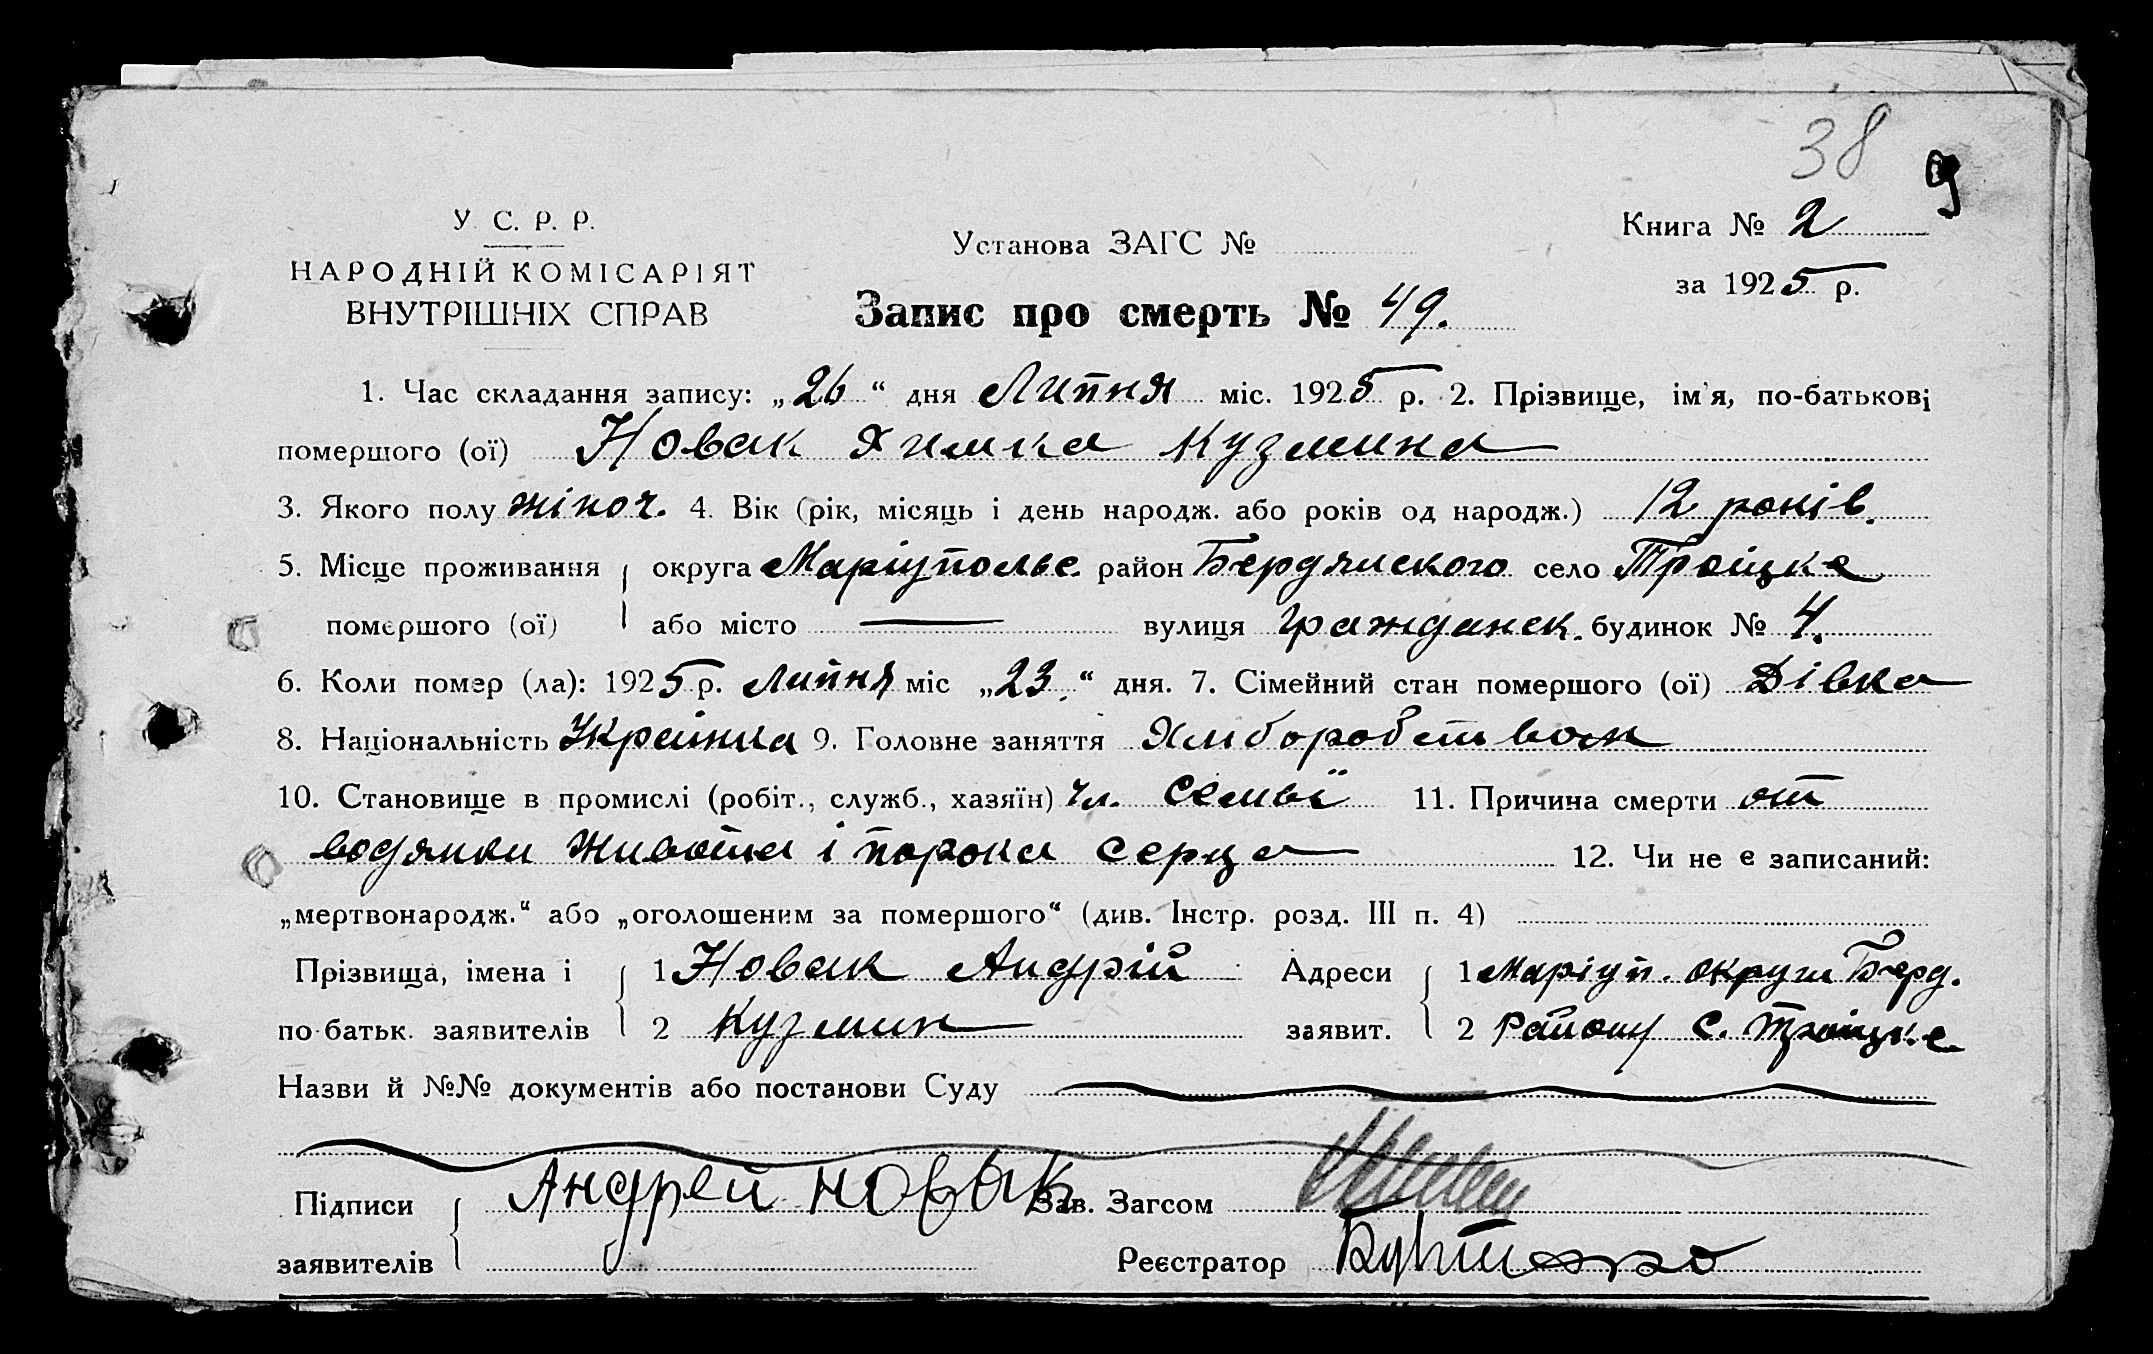 38
9
У. С. Р. Р.
НАРОДНІЙ КОМІСАРІЯТ
ВНУТРІШНІХ СПРАВ
Установа ЗАГС №
Книга № 2
за 1925 р.
Запис про смерть № 49.
1. Час складання запису: „26“ дня Липня міс. 1925 р. 2. Прізвище, ім'я, по-батькові
помершого (ої) Новак Химка Кузмина
3. Якого полу жіноч. 4. Вік (рік, місяць і день народж. або років од народж.) 12 років.
5. Місце проживання округа Маріупольс. район Бердянского село Троіцке
помершого (ої) або місто — вулиця Гражданск. будинок № 4.
6. Коли помер (ла): 1925 р. Липня міс „23“ дня. 7. Сімейний стан помершого (ої) Дівка
8. Національність Украінка 9. Головне заняття Хліборобством
10. Становище в промислі (робіт., служб., хазяїн) Чл. семьї 11. Причина смерти от
водянки живота і порока серца 12. Чи не є записаний:
„мертвонародж.“ або „оголошеним за помершого“ (див. Інстр. розд. III п. 4)
Прізвища, імена і 1 Новак Андрій Адреси 1 Маріуп. округи Берд.
по-батьк. заявителів 2 Кузмин заявит. 2 району с. Троіцке
Назви й №№ документів або постанови Суду
Підписи Андрей Новак Зав. Загсом
заявителів Реєстратор